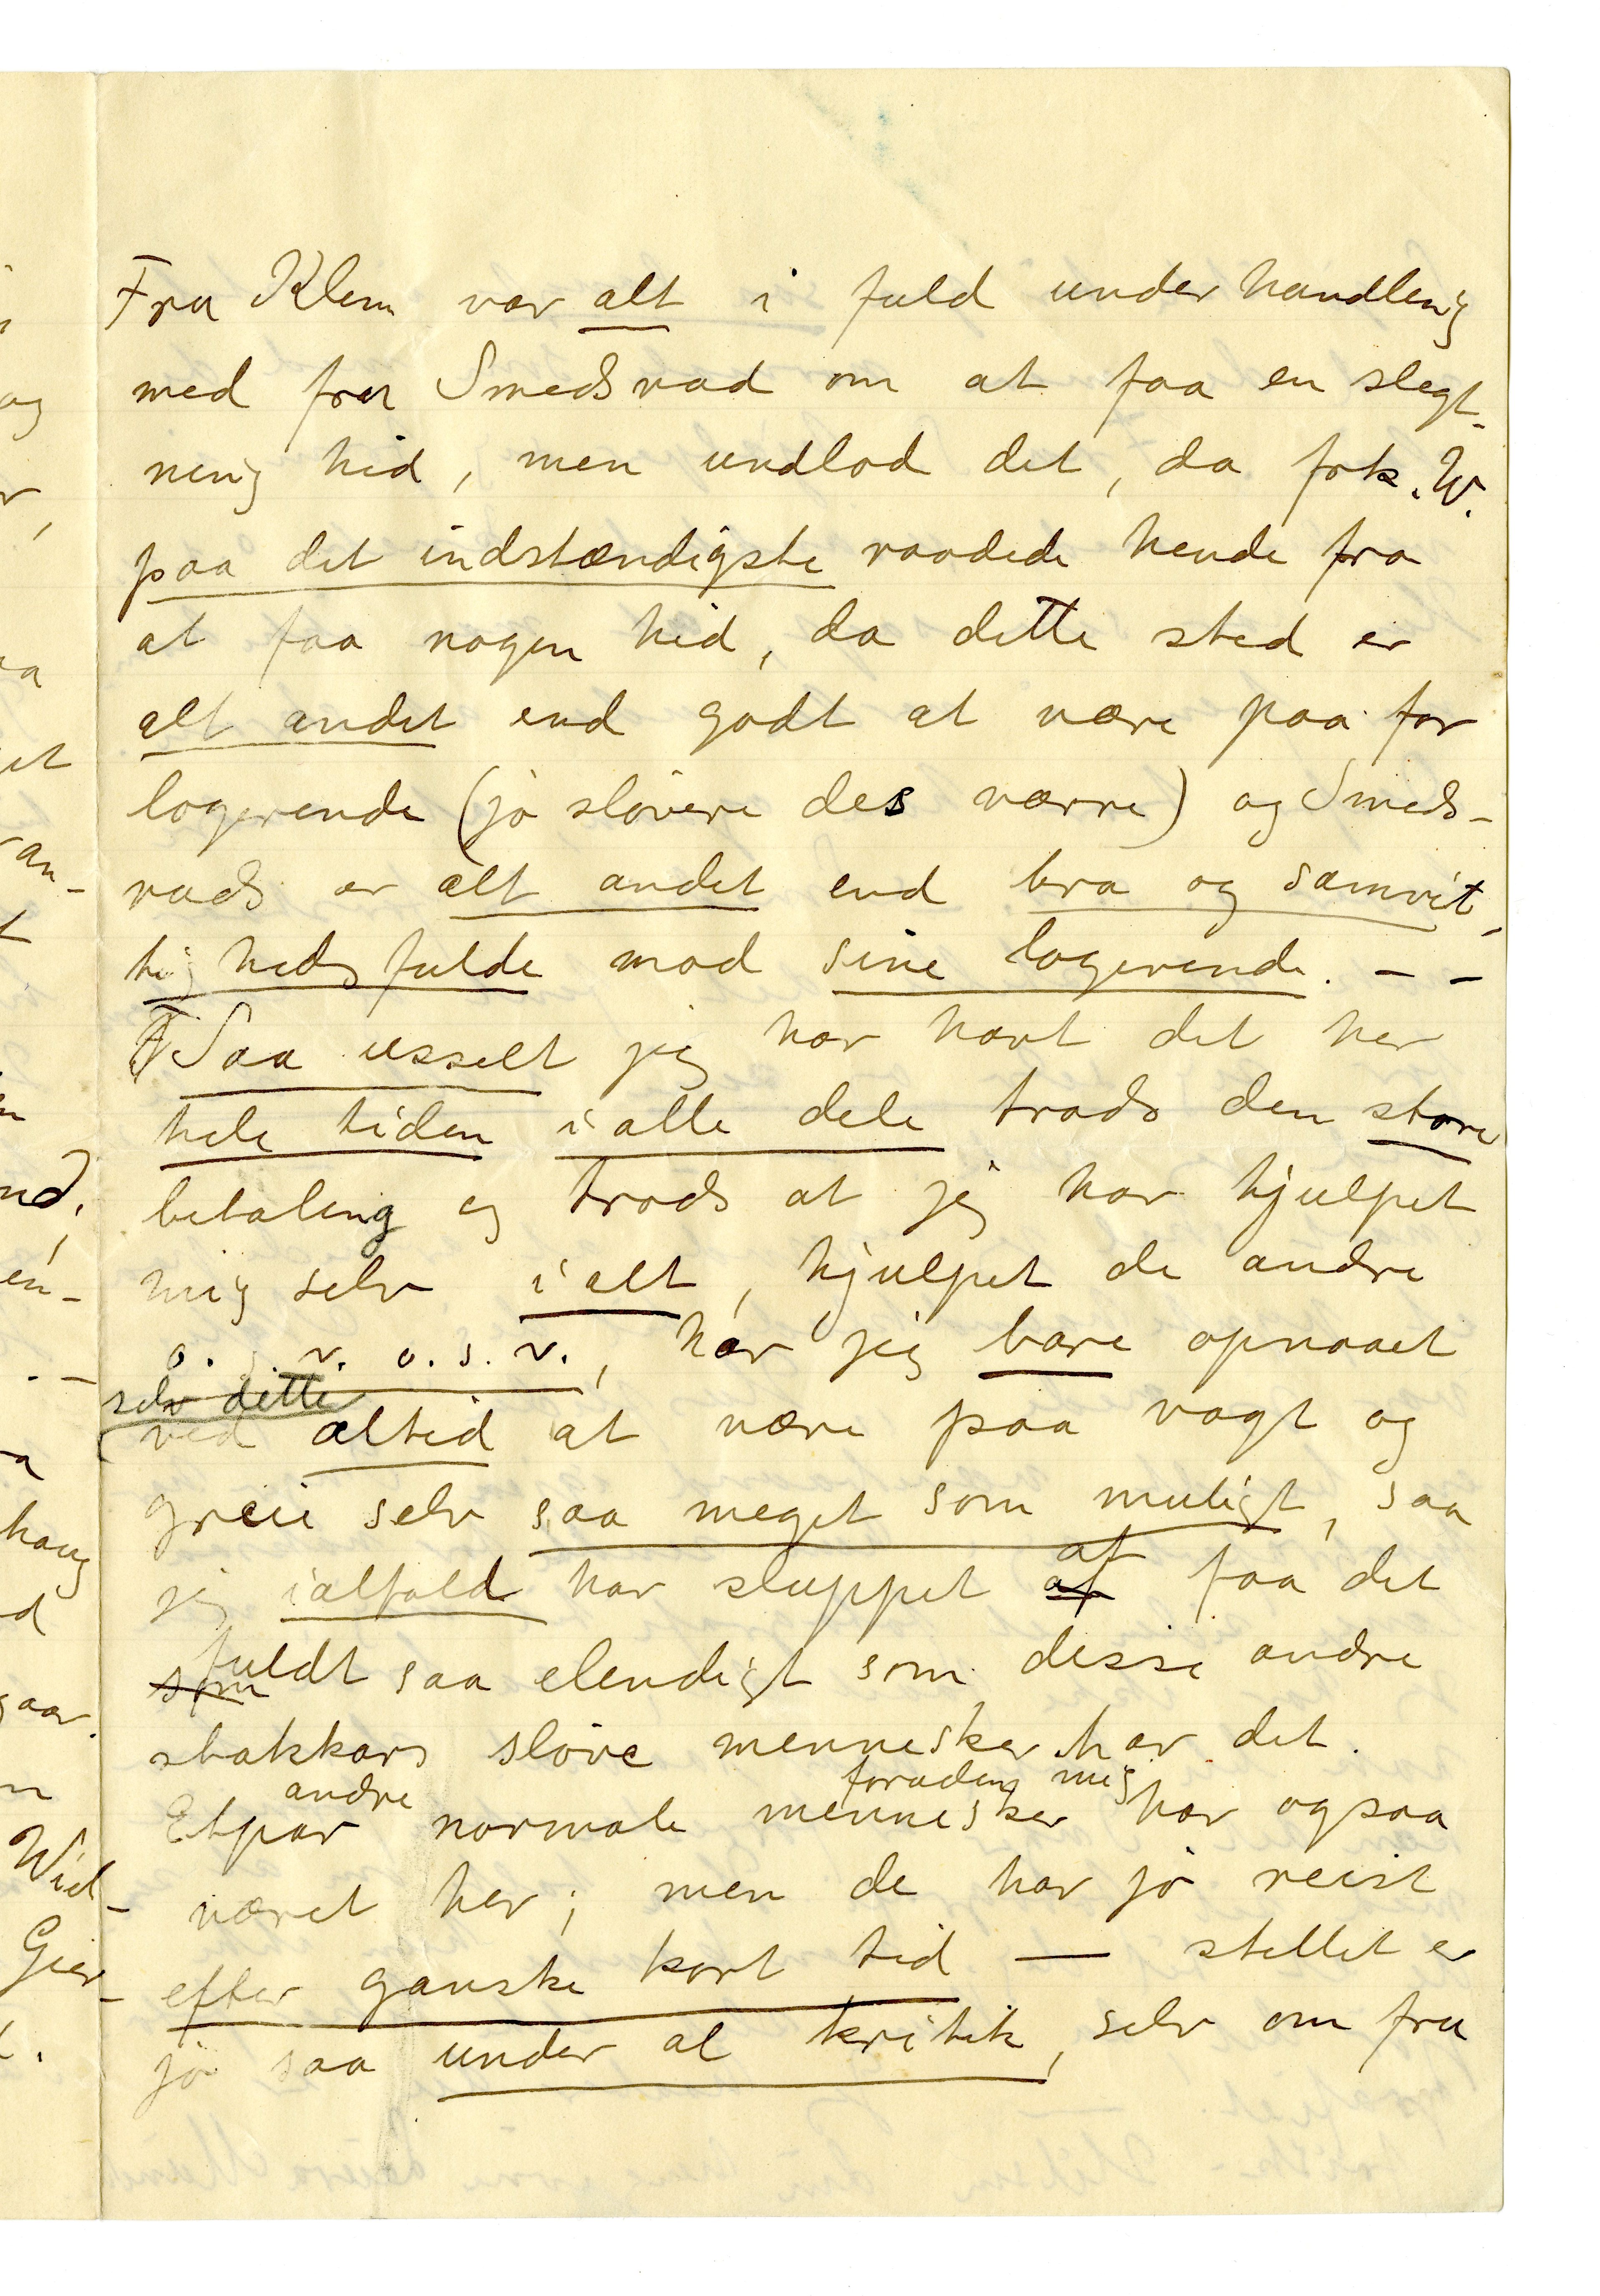 Fru Klem var alt i fuld underhandling
med fru Smedsvad om at faa en slegt-
ning hid, men undlod det, da frk. W.
paa det indstændigste raadede hende fra
at faa nogen hid, da dette sted er
alt andet end godt at være paa for
logerende (jo sløvere des værre) og Smeds-
vads er alt andet end bra og samvit-
tighedsfulde mod sine logerende. – –
Saa usselt jeg har havt det her
hele tiden i alle dele trods den store
betaling og trods at jeg har hjulpet
mig selv i alt, hjulpet de andre
o. s. v. o. s. v., har jeg bare opnaaet
selv dette
ved altid at være paa vagt og
greie selv saa meget som muligt, saa
jeg ialfald har sluppet af at faa det
som fuldt saa elendigt som disse andre
stakkars sløve mennesker har det.
andre foruden mig
Etpar normale mennesker har ogsaa
været her; men de har jo reist
efter ganske kort tid — stellet er
jo saa under al kritik, selv om fru
og
et
an-
t
nd,
en-
hang
d
gaar.
Wid-
Gier-